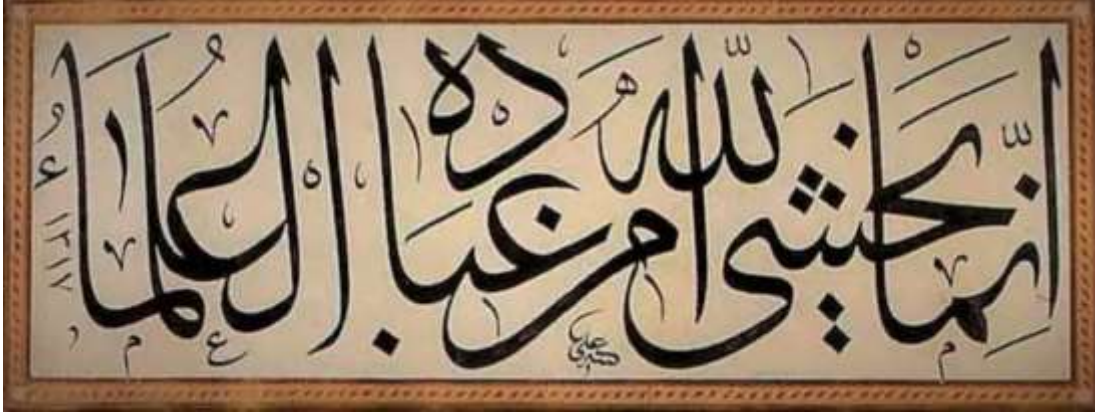 إنما يخشى الله من عباده العلماء
١٣١٧